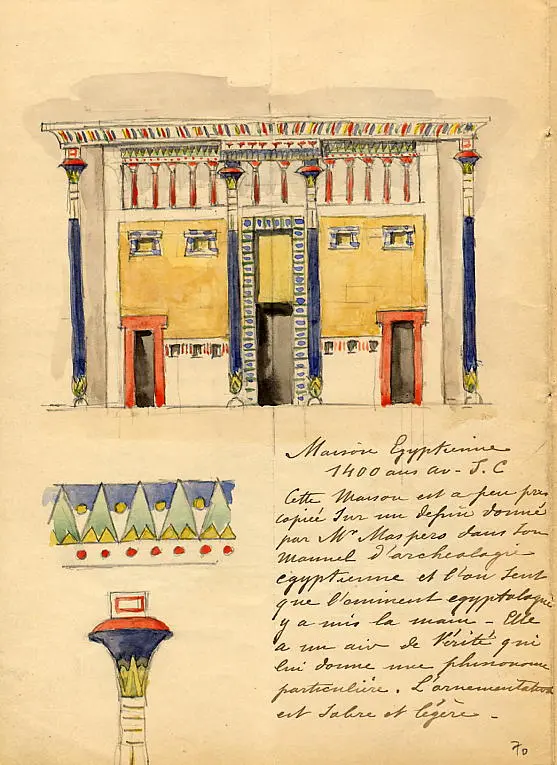 Maison Egyptienne
1400 ans av - J. C
Cette Maison est a peu près
copiée sur un dessin donné
par Mr Maspero dans son
Manuel d'archeologie
egyptienne et l'on sent
que l'eminent egyptologue
y a mis la main - Elle
a un air de Vérité qui
lui donne une phisionomie
particulière. L'ornementation
est sobre et légère -
70